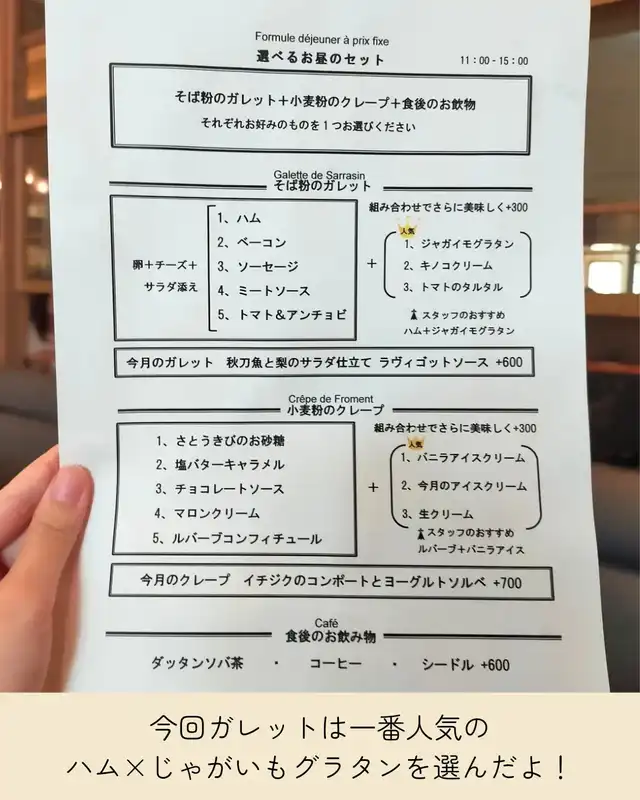 Formule déjeuner à prix fixe
選べるお昼のセット
11:00-15:00
そば粉のガレット+小麦粉のクレープ+食後のお飲物
それぞれお好みのものを1つお選びください
Galette de Sarrasin
そば粉のガレット
卵+チーズ+
サラダ添え
1、ハム
2、ベーコン
3、ソーセージ
4、ミートソース
5、トマト&アンチョビ
+
組み合わせでさらに美味しく+300
人気
1、ジャガイモグラタン
2、キノコクリーム
3、トマトのタルタル
スタッフのおすすめ
ハム+ジャガイモグラタン
今月のガレット 秋刀魚と梨のサラダ仕立て ラヴィゴットソース +600
Crêpe de Froment
小麦粉のクレープ
1、さとうきびのお砂糖
2、塩バターキャラメル
3、チョコレートソース
4、マロンクリーム
5、ルバーブコンフィチュール
+
組み合わせでさらに美味しく+300
人気
1、バニラアイスクリーム
2、今月のアイスクリーム
3、生クリーム
スタッフのおすすめ
ルバーブ+バニラアイス
今月のクレープ イチジクのコンポートとヨーグルトソルベ +700
Café
食後のお飲み物
ダッタンソバ茶 ・ コーヒー ・ シードル +600
今回ガレットは一番人気の
ハム×じゃがいもグラタンを選んだよ!